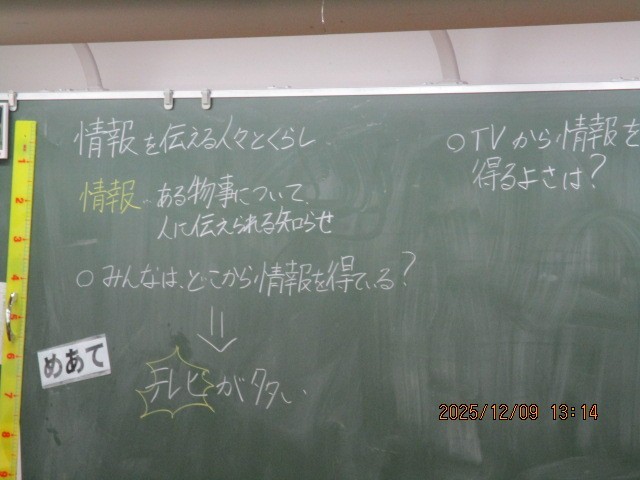 情報を伝える人々とくらし
情報…ある物事について、
人に伝えられる知らせ
○みんなは、どこから情報を得ている?
⇓
めあて
テレビが多い
○TVから情報を
得るよさは?
1
2
3
4
5
6
7
8
9
2025/12/09 13:14